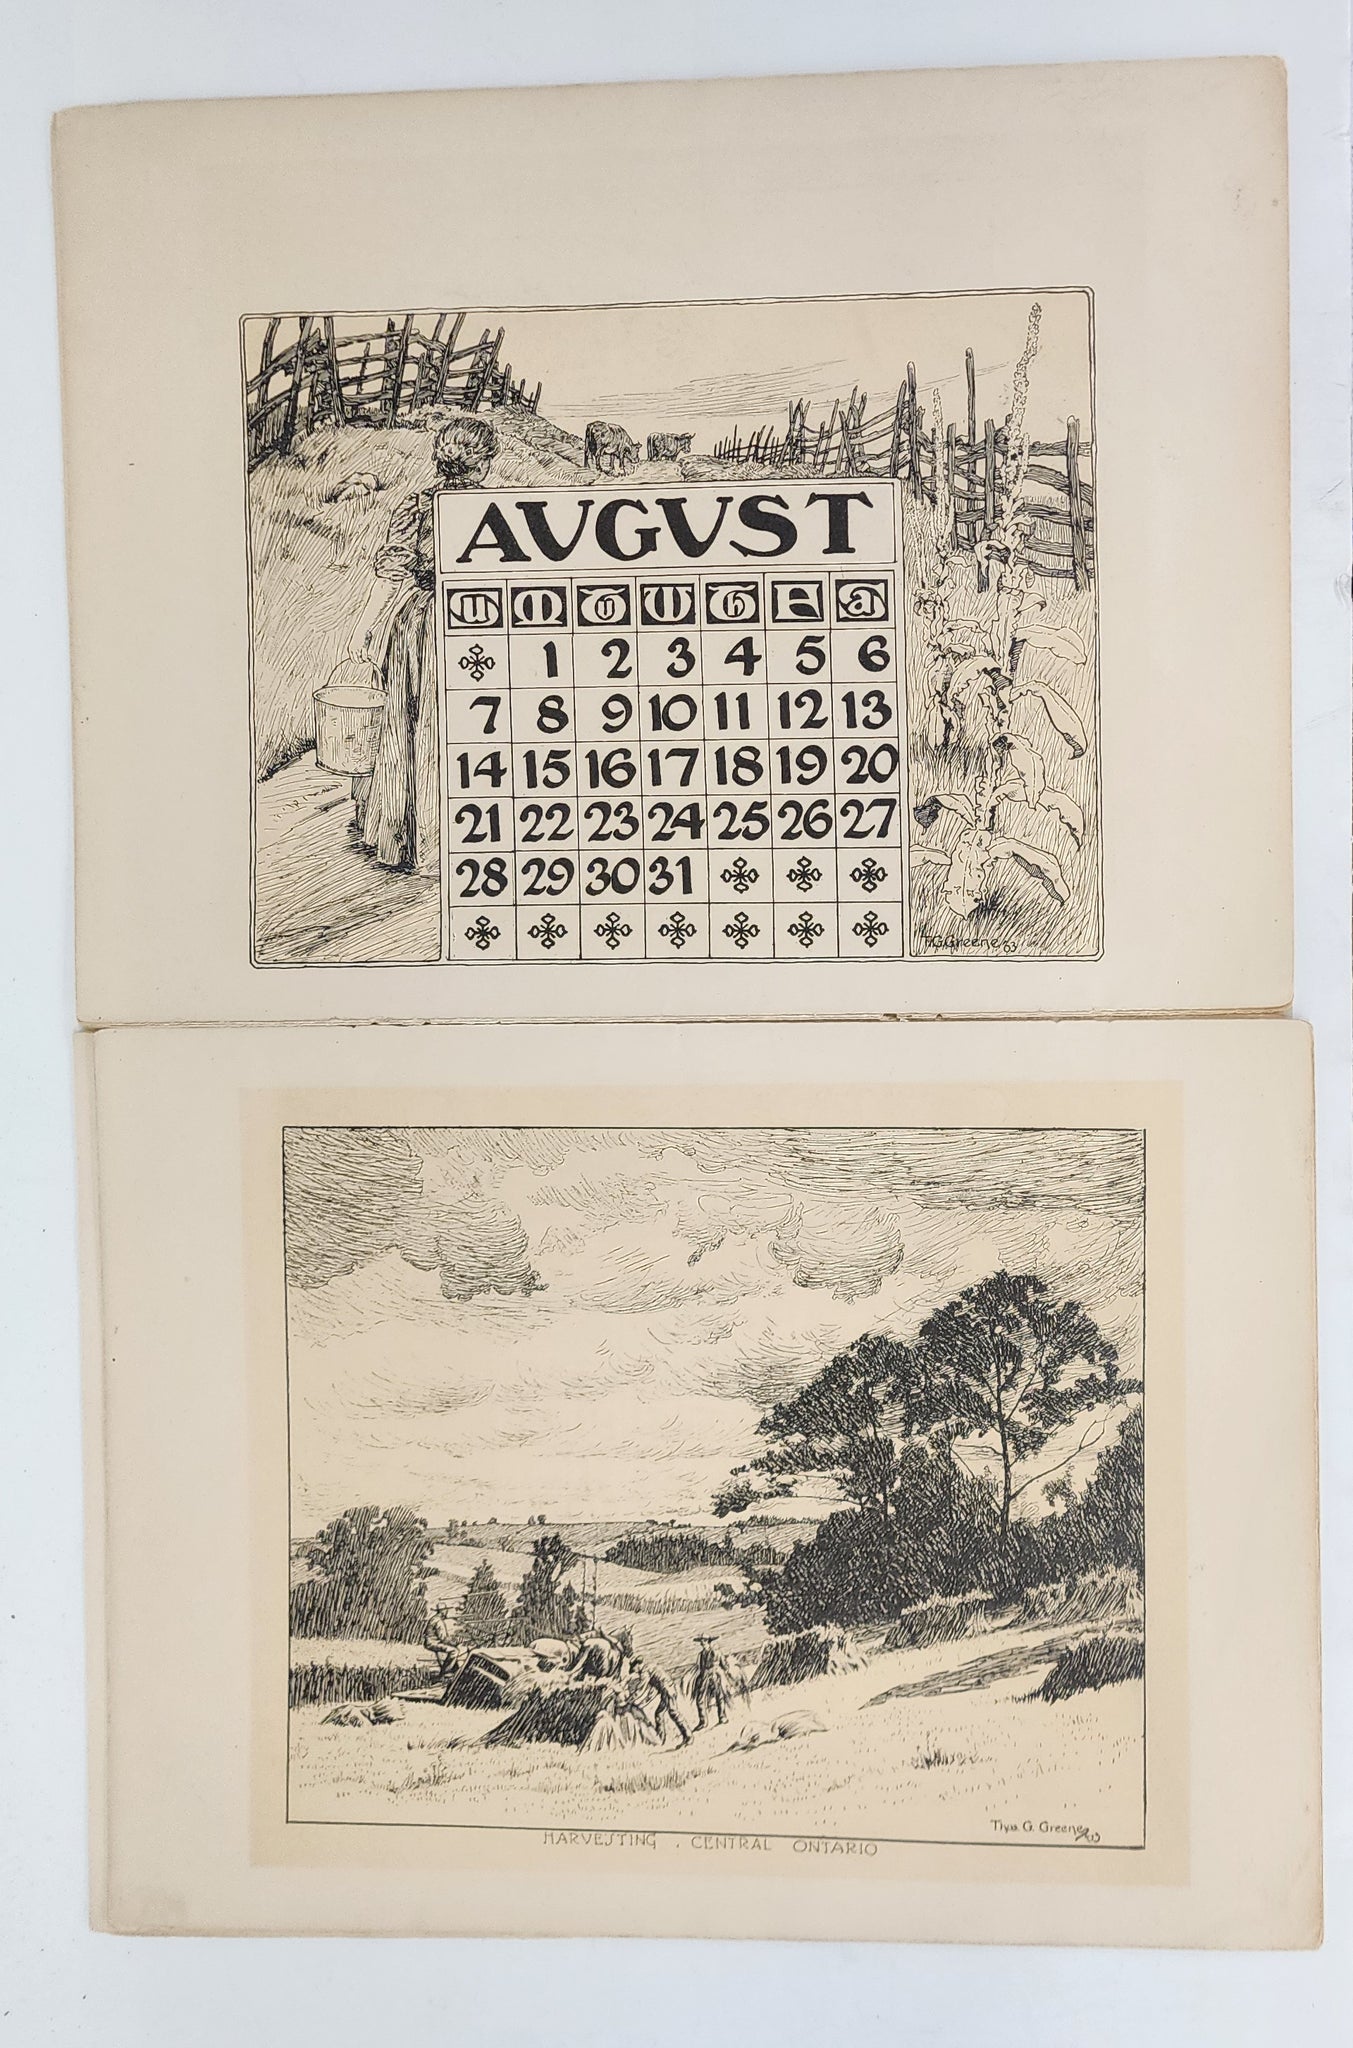 AVGVST
SU M TU W TH F SA
1 2 3 4 5 6
7 8 9 10 11 12 13
14 15 16 17 18 19 20
21 22 23 24 25 26 27
28 29 30 31
T.G.Greene 03
Thos. G. Greene 03
HARVESTING . CENTRAL ONTARIO